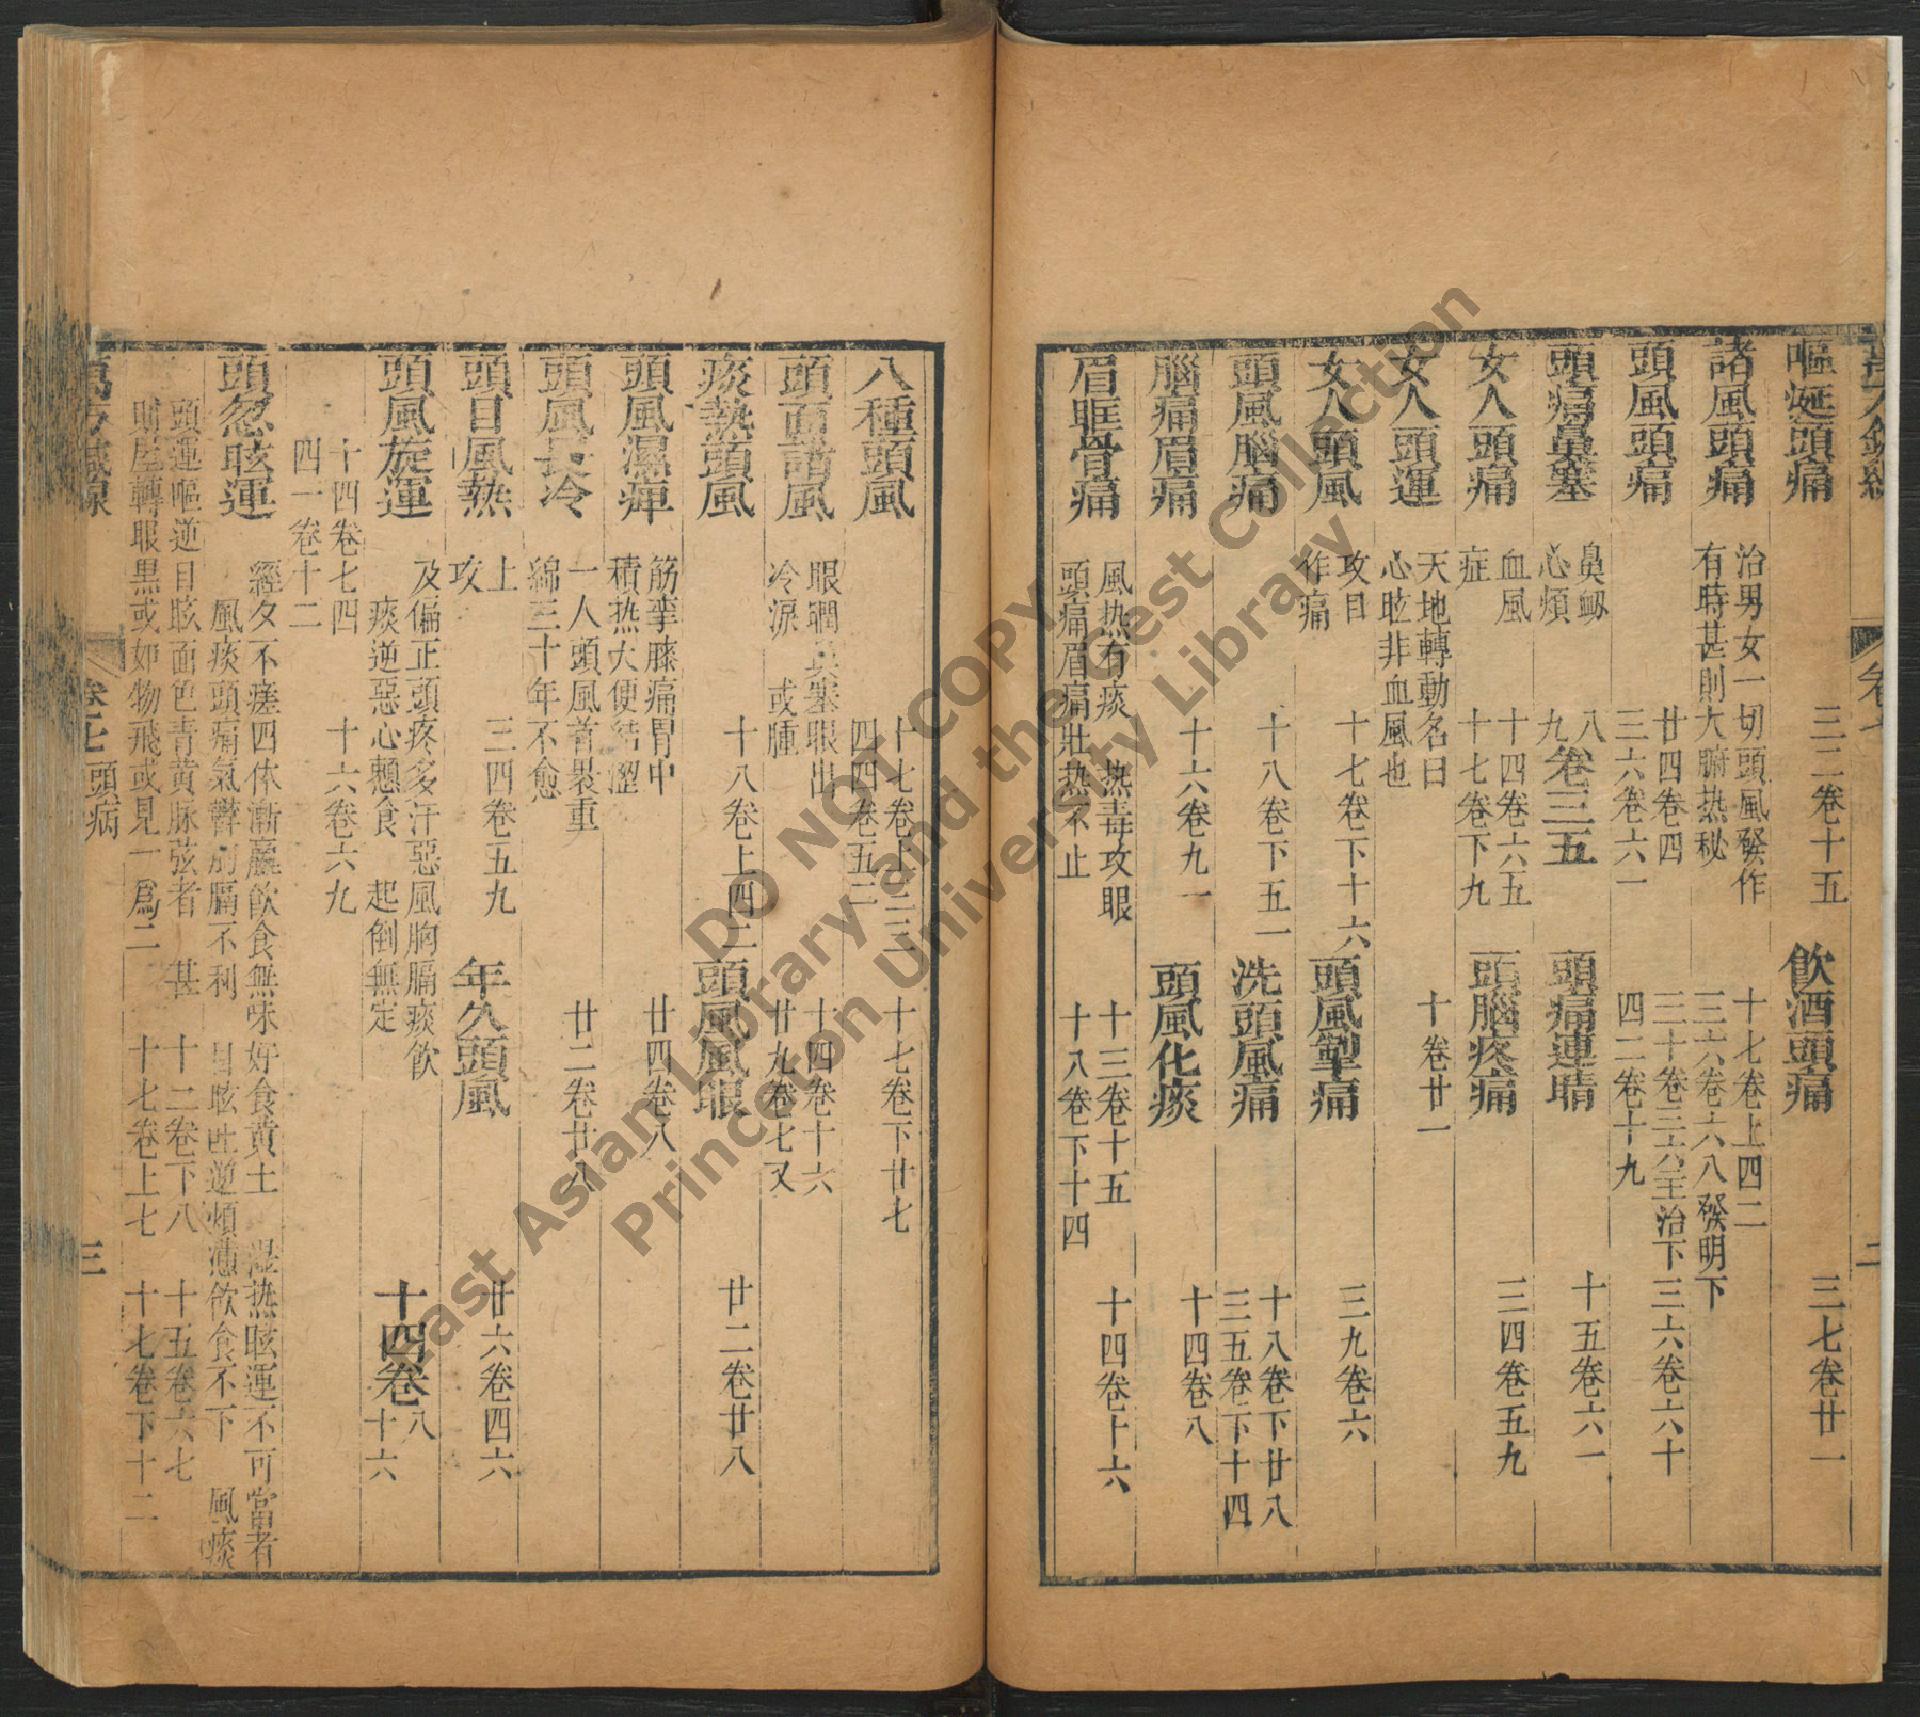 嘔涎頭痛 三二卷十五 飲酒頭痛 三七卷廿一
諸風頭痛 治男女一切頭風發作 十七卷上四二
有時甚則大腑热秘 三六卷六八發明下
頭風頭痛 廿四卷四 三十卷三六主治下 三六卷六十
三六卷六一 四二卷十九
頭痛鼻塞 鼻衂 八
心煩 九 卷三五 頭痛連睛 十五卷六一
女人頭痛 血風 十四卷六五
症 十七卷下九 頭腦疼痛 三四卷五九
女人頭運 天地轉動名曰 十卷廿一
心眩非血風也
女人頭風 攻目 十七卷下十六 頭風掣痛 三九卷六
作痛
頭風腦痛 十八卷下五一 洗頭風痛 十八卷下廿八
三五卷下十四
腦痛眉痛 十六卷九一 頭風化痰 十四卷八
眉眶骨痛 風热有痰 热毒攻眼 十三卷十五 十四卷十六
頭痛眉痛壯热不止 十八卷下十四
八種頭風 十七卷上三三 十七卷下廿七
四四卷五二
頭面諸風 眼瞤鼻塞眼出 十四卷十六
冷淚 或腫 廿九卷七又
痰熱頭風 十八卷上四二 頭風風眼 廿二卷廿八
頭風濕痺 筋攣膝痛胃中 廿四卷八
積热大便結澀
頭風長冷 一人頭風首裹重 廿二卷廿八
綿三十年不愈
頭目風熱 上 三四卷五九 年久頭風 廿六卷四六
攻
頭風旋運 及偏正頭疼多汗惡風胸膈痰飲 十四卷八
痰逆惡心懶食 起倒無定 十六
十四卷七四 十六卷六九
四一卷十二
頭忽眩運 經久不瘥四体漸羸飲食無味好食黄土 湿热眩運不可當者
風痰頭痛氣鬱胸膈不利 目眩吐逆煩懣飲食不下 風痰
頭運嘔逆目眩面色青黄脉弦者 甚 十二卷下八 十五卷六七
眼黒或如物飛或見一爲二 十七卷上七 十七卷下十二
卷七 頭病 三